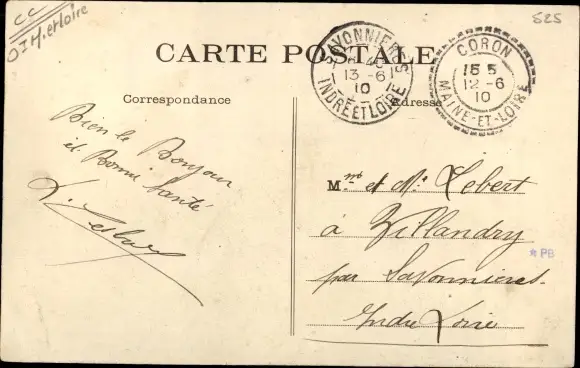 CC
Indre et Loire
525
CARTE POSTALE
SAVONNIERES
13 -6
10
INDRE ET LOIRE
CORON
15 5
12 -6
10
MAINE-ET-LOIRE
Correspondance
Adresse
Bien le Bonjour
et Bonne Santé
Mme et Mr Lebert
à Villandry
par Savonnières
Indre Loire
* PB